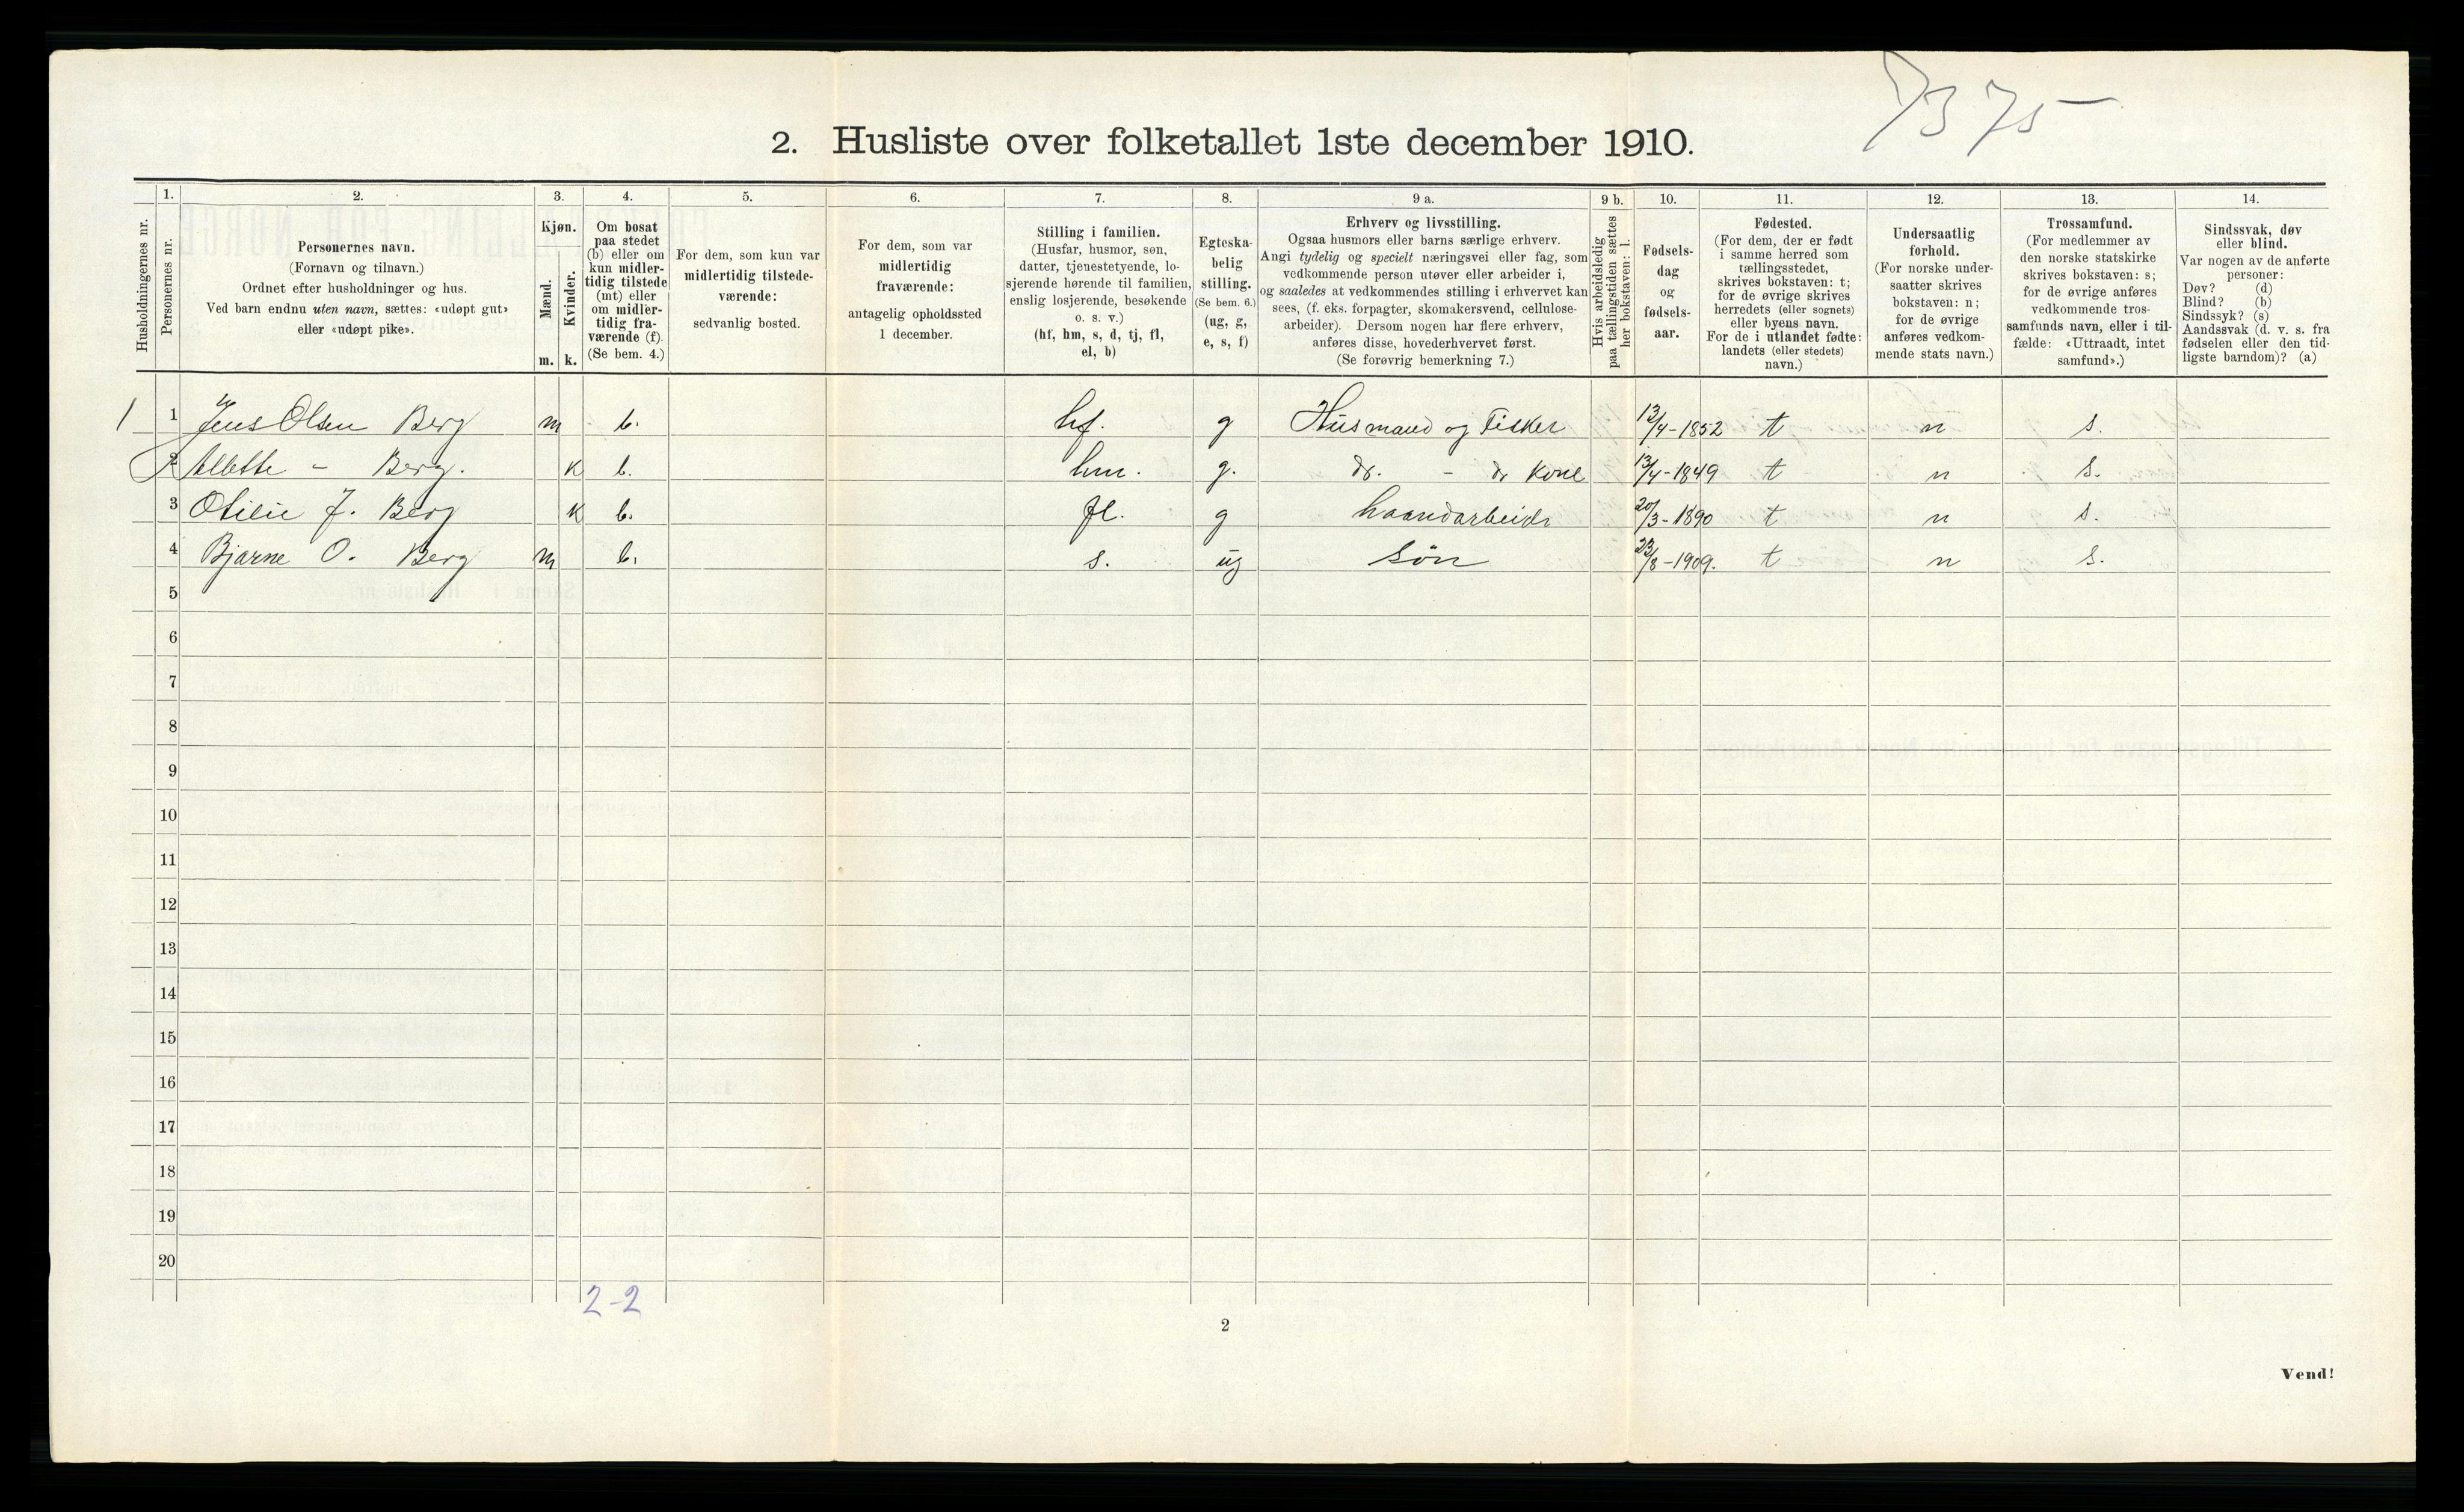 7375
2. Husliste over folketallet 1ste december 1910.
Husholdningernes nr.
1. Personernes nr.
2. Personernes navn.
(Fornavn og tilnavn.)
Ordnet efter husholdninger og hus.
Ved barn endnu uten navn, sættes: «udøpt gut»
eller «udøpt pike».
3. Kjøn.
Mænd. Kvinder.
m. k.
4. Om bosat
paa stedet
(b) eller om
kun midler-
tidig tilstede
(mt) eller
om midler-
tidig fra-
værende (f).
(Se bem. 4.)
5. For dem, som kun var
midlertidig tilstede-
værende:
sedvanlig bosted.
6. For dem, som var
midlertidig
fraværende:
antagelig opholdssted
1 december.
7. Stilling i familien.
(Husfar, husmor, søn,
datter, tjenestetyende, lo-
sjerende hørende til familien,
enslig losjerende, besøkende
o. s. v.)
(hf, hm, s, d, tj, fl,
el, b)
8. Egteska-
belig
stilling.
(Se bem. 6.)
(ug, g,
e, s, f)
9 a. Erhverv og livsstilling.
Ogsaa husmors eller barns særlige erhverv.
Angi tydelig og specielt næringsvei eller fag, som
vedkommende person utøver eller arbeider i,
og saaledes at vedkommendes stilling i erhvervet kan
sees, (f. eks. forpagter, skomakersvend, cellulose-
arbeider). Dersom nogen har flere erhverv,
anføres disse, hovederhvervet først.
(Se forøvrig bemerkning 7.)
9 b. Hvis arbeidsledig
paa tællingstiden sættes
her bokstaven: l.
10. Fødsels-
dag
og
fødsels-
aar.
11. Fødested.
(For dem, der er født
i samme herred som
tællingsstedet,
skrives bokstaven: t;
for de øvrige skrives
herredets (eller sognets)
eller byens navn.
For de i utlandet fødte:
landets (eller stedets)
navn.)
12. Undersaatlig
forhold.
(For norske under-
saatter skrives
bokstaven: n;
for de øvrige
anføres vedkom-
mende stats navn.)
13. Trossamfund.
(For medlemmer av
den norske statskirke
skrives bokstaven: s;
for de øvrige anføres
vedkommende tros-
samfunds navn, eller i til-
fælde: «Uttraadt, intet
samfund».)
14. Sindssvak, døv
eller blind.
Var nogen av de anførte
personer:
Døv? (d)
Blind? (b)
Sindssyk? (s)
Aandssvak (d. v. s. fra
fødselen eller den tid-
ligste barndom)? (a)
1 1 Jens Olsen Berg m b. hf. g Husmand og Fisker 13/4-1852 t n s.
2 Allette - Berg. k b. hm. g. do. - do kone 13/4-1849 t n s.
3 Otilie J. Berg k b. fl. g haandarbeide 20/3-1890 t n s.
4 Bjarne O. Berg m b. s. ug søn 23/8-1909. t n s.
5
6
7
8
9
10
11
12
13
14
15
16
17
18
19
20
2-2
2
Vend!